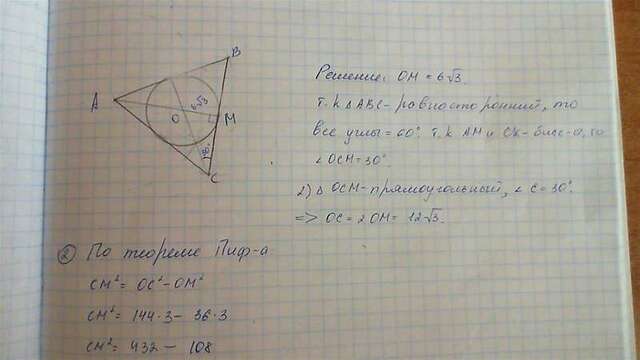 B
A
6√3
O
M
C
Решение: OM = 6√3.
т.к △ABC - равносторонний, то
все углы = 60°. т.к AM и CK - бисс-ы, то
∠OCM = 30°.
1) △ OCM - прямоугольный, ∠ C = 30°.
=> OC = 2OM = 12√3.
2 По теореме Пиф-а
CM² = OC² - OM²
CM² = 144·3 - 36·3
CM² = 432 - 108